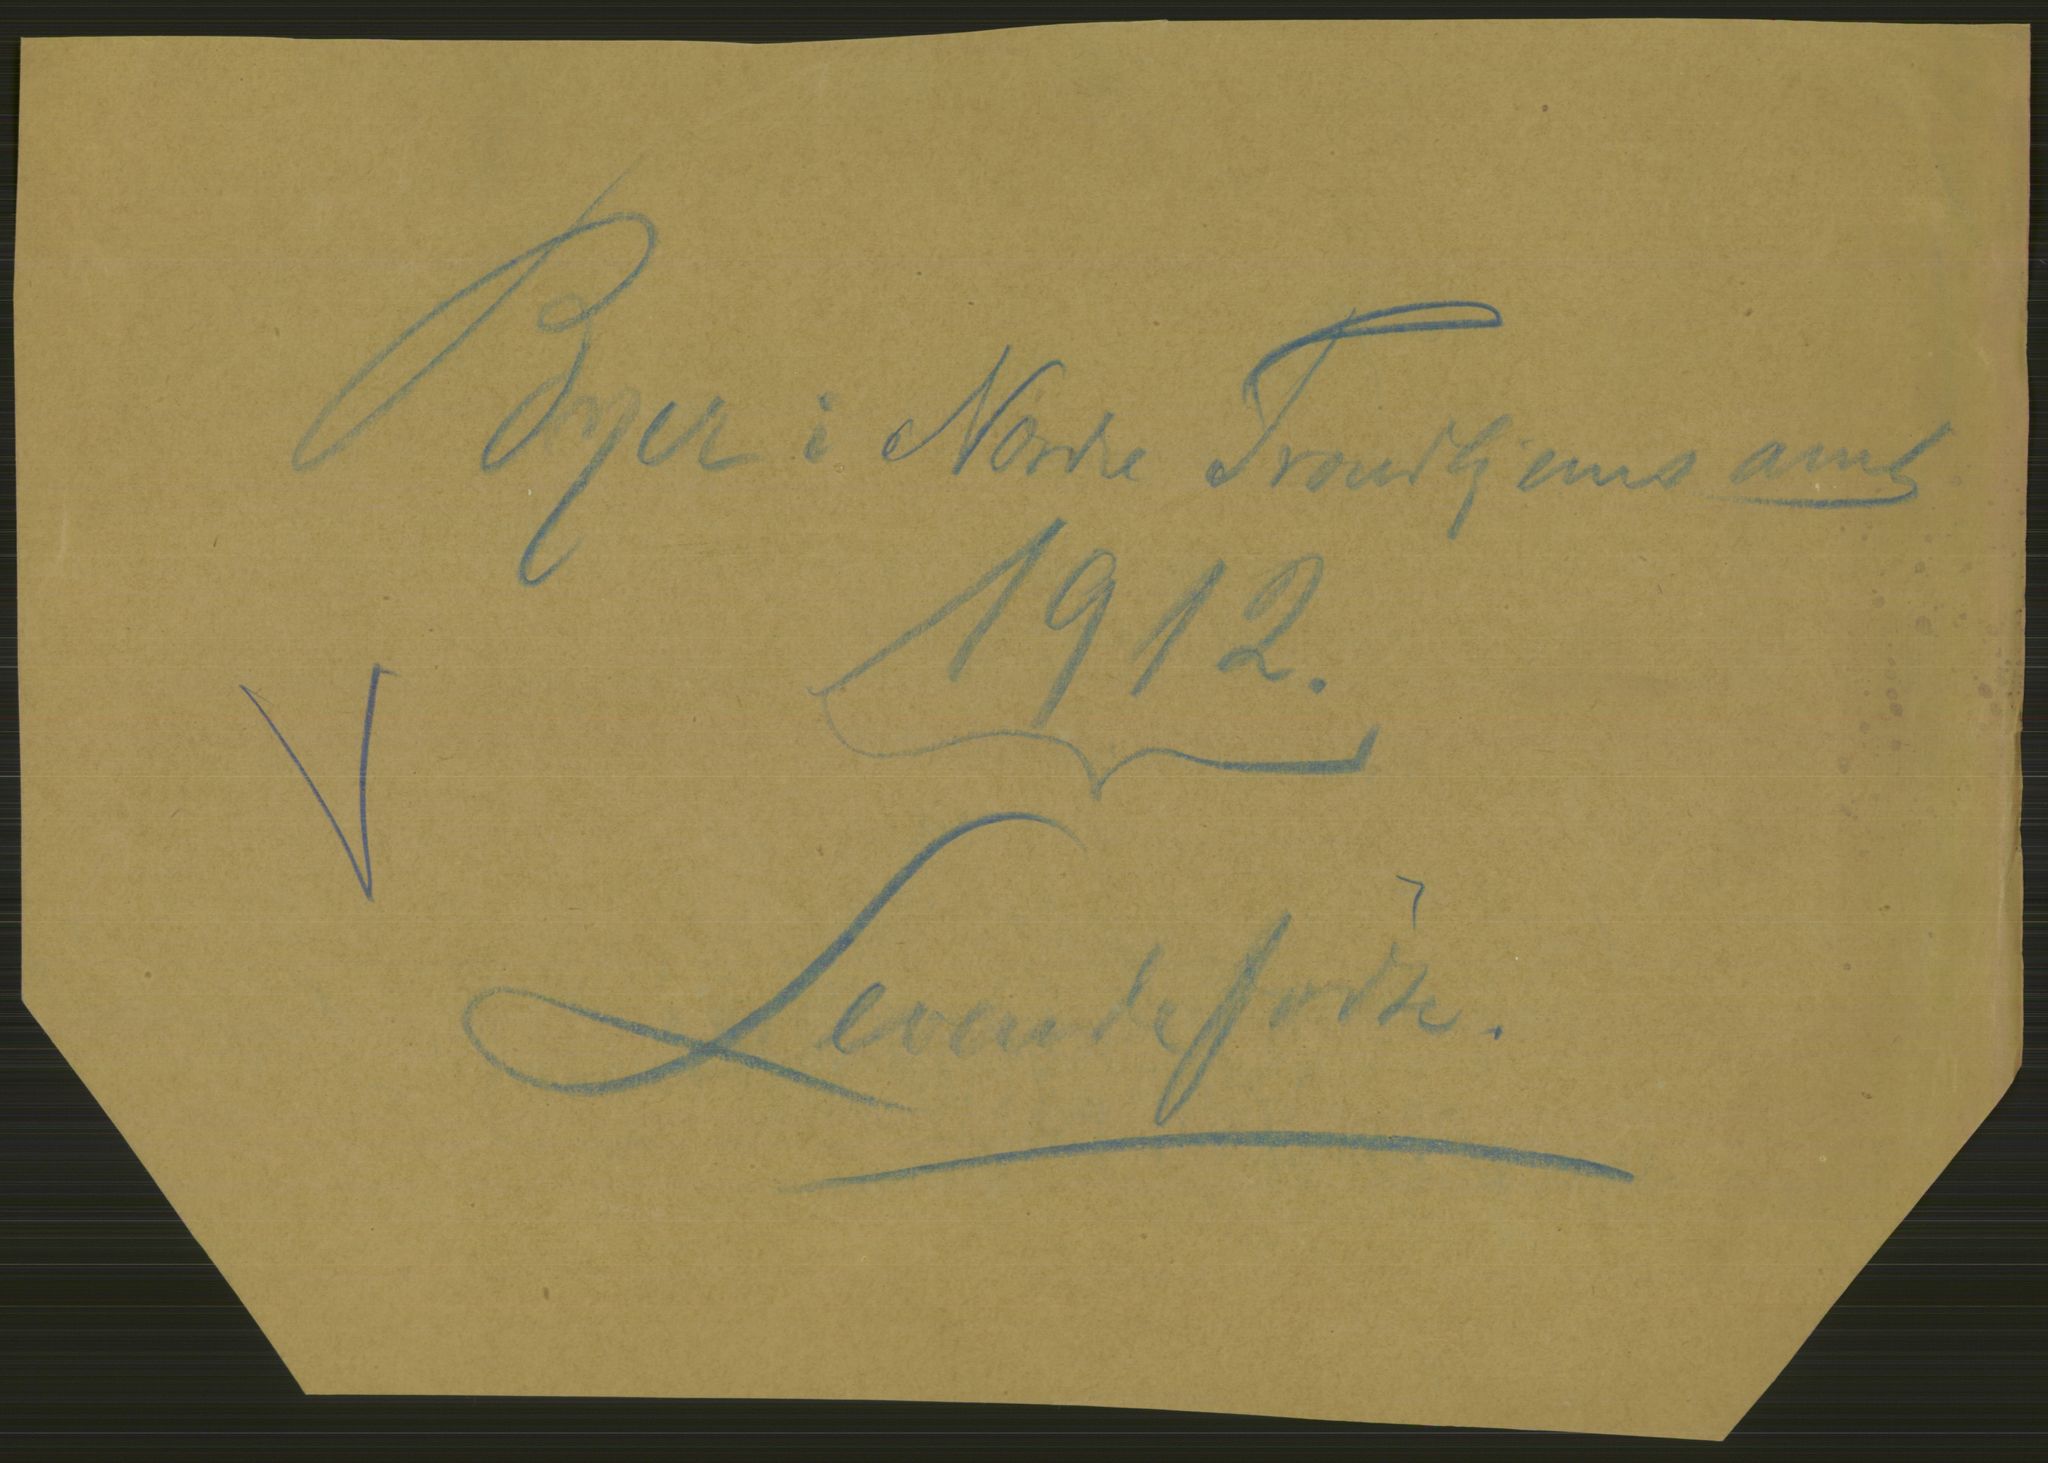 Byer i Nordre Trondhjems amt
1912.
Levendefødte.